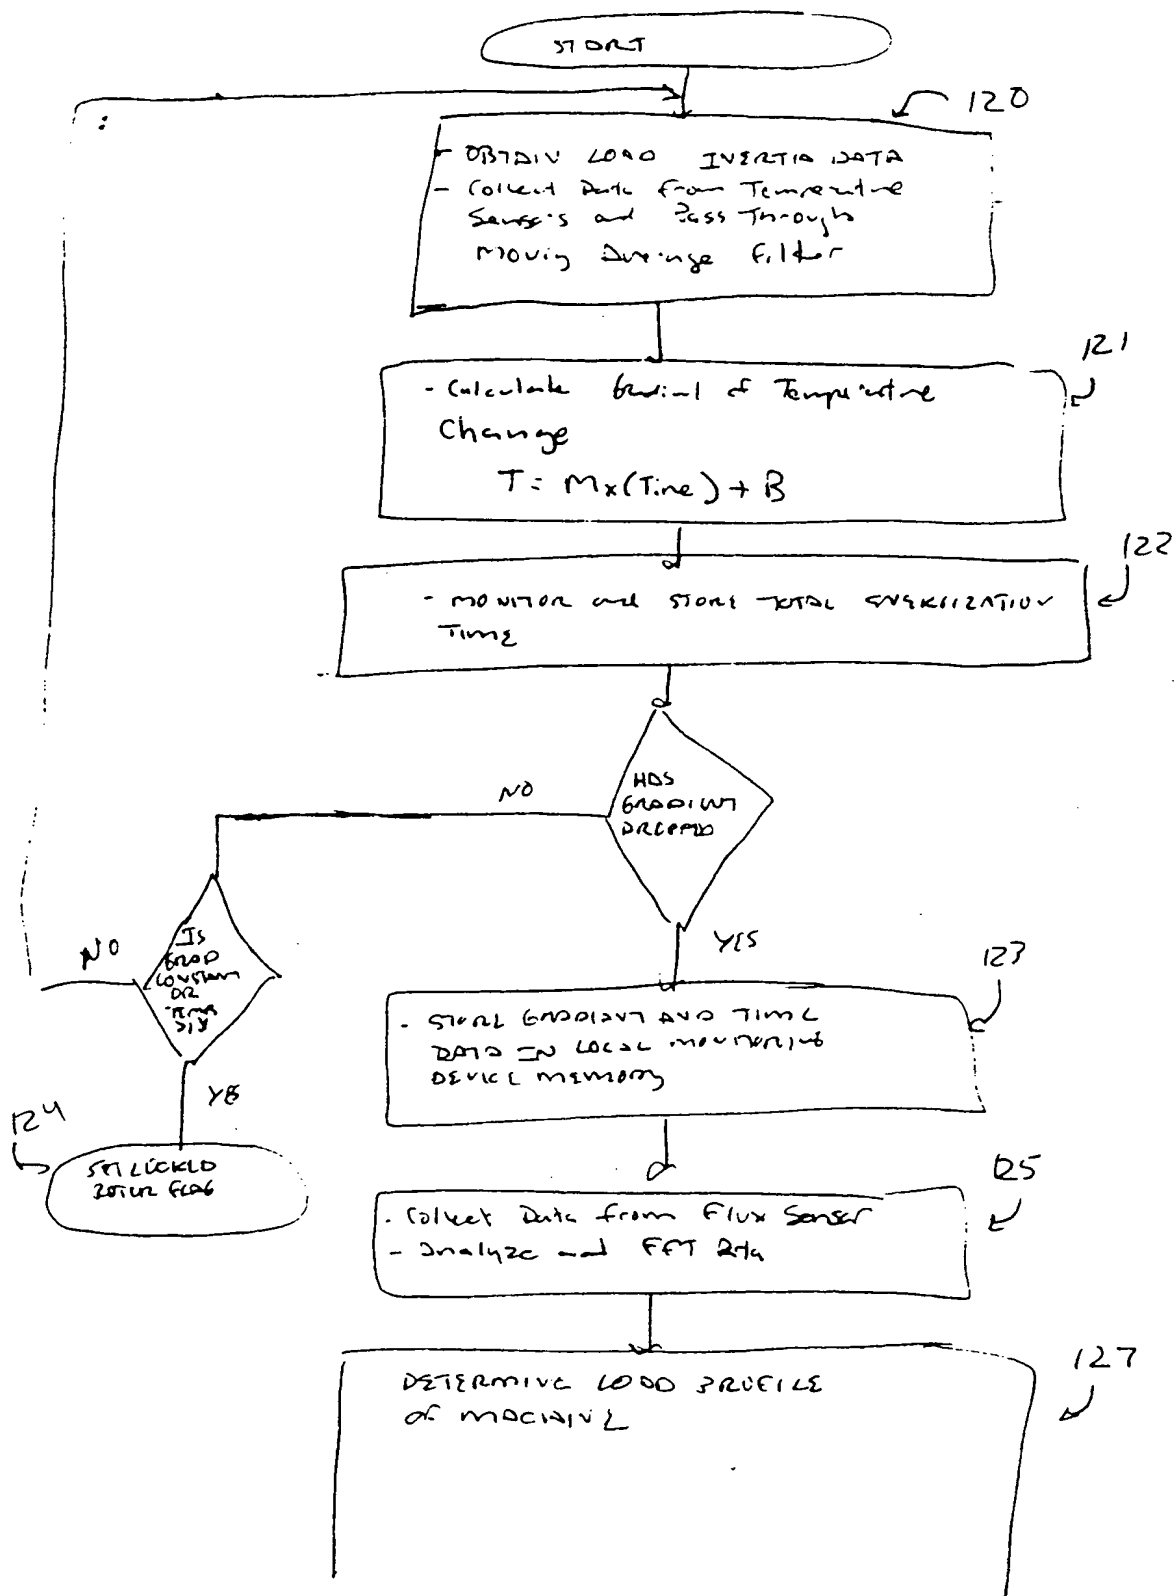 START
120
- OBTAIN LOAD INERTIA DATA
- Collect Data from Temperature
Sensors and Pass Through
Moving Average Filter
121
- Calculate Gradient of Temperature
Change
T = Mx(Time) + B
122
- MONITOR and STORE TOTAL ENERGIZATION
TIME
HAS
GRADIENT
DROPPED
NO
YES
IS
GRAD
CONSTANT
OR
TEMP
NO
YES
123
- STORE GRADIENT AND TIME
DATA IN LOCAL MONITORING
DEVICE MEMORY
124
SET LOCKED
ROTOR FLAG
125
- Collect Data from Flux Sensor
- Analyze and FFT Data
127
DETERMINE LOAD PROFILE
OF MACHINE